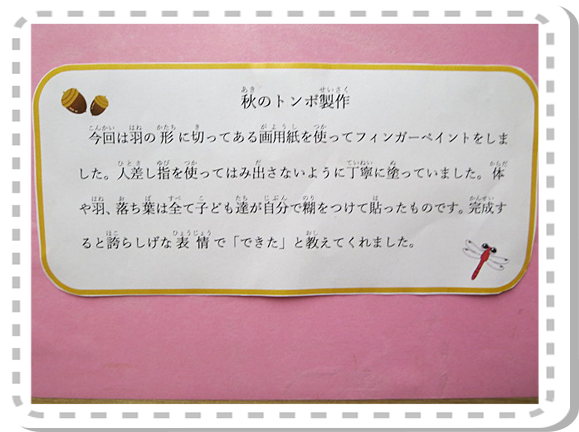 秋のトンボ製作
今回は羽の形に切ってある画用紙を使ってフィンガーペイントをしま
した。人差し指を使ってはみ出さないように丁寧に塗っていました。体
や羽、落ち葉は全て子ども達が自分で糊をつけて貼ったものです。完成す
ると誇らしげな表情で「できた」と教えてくれました。